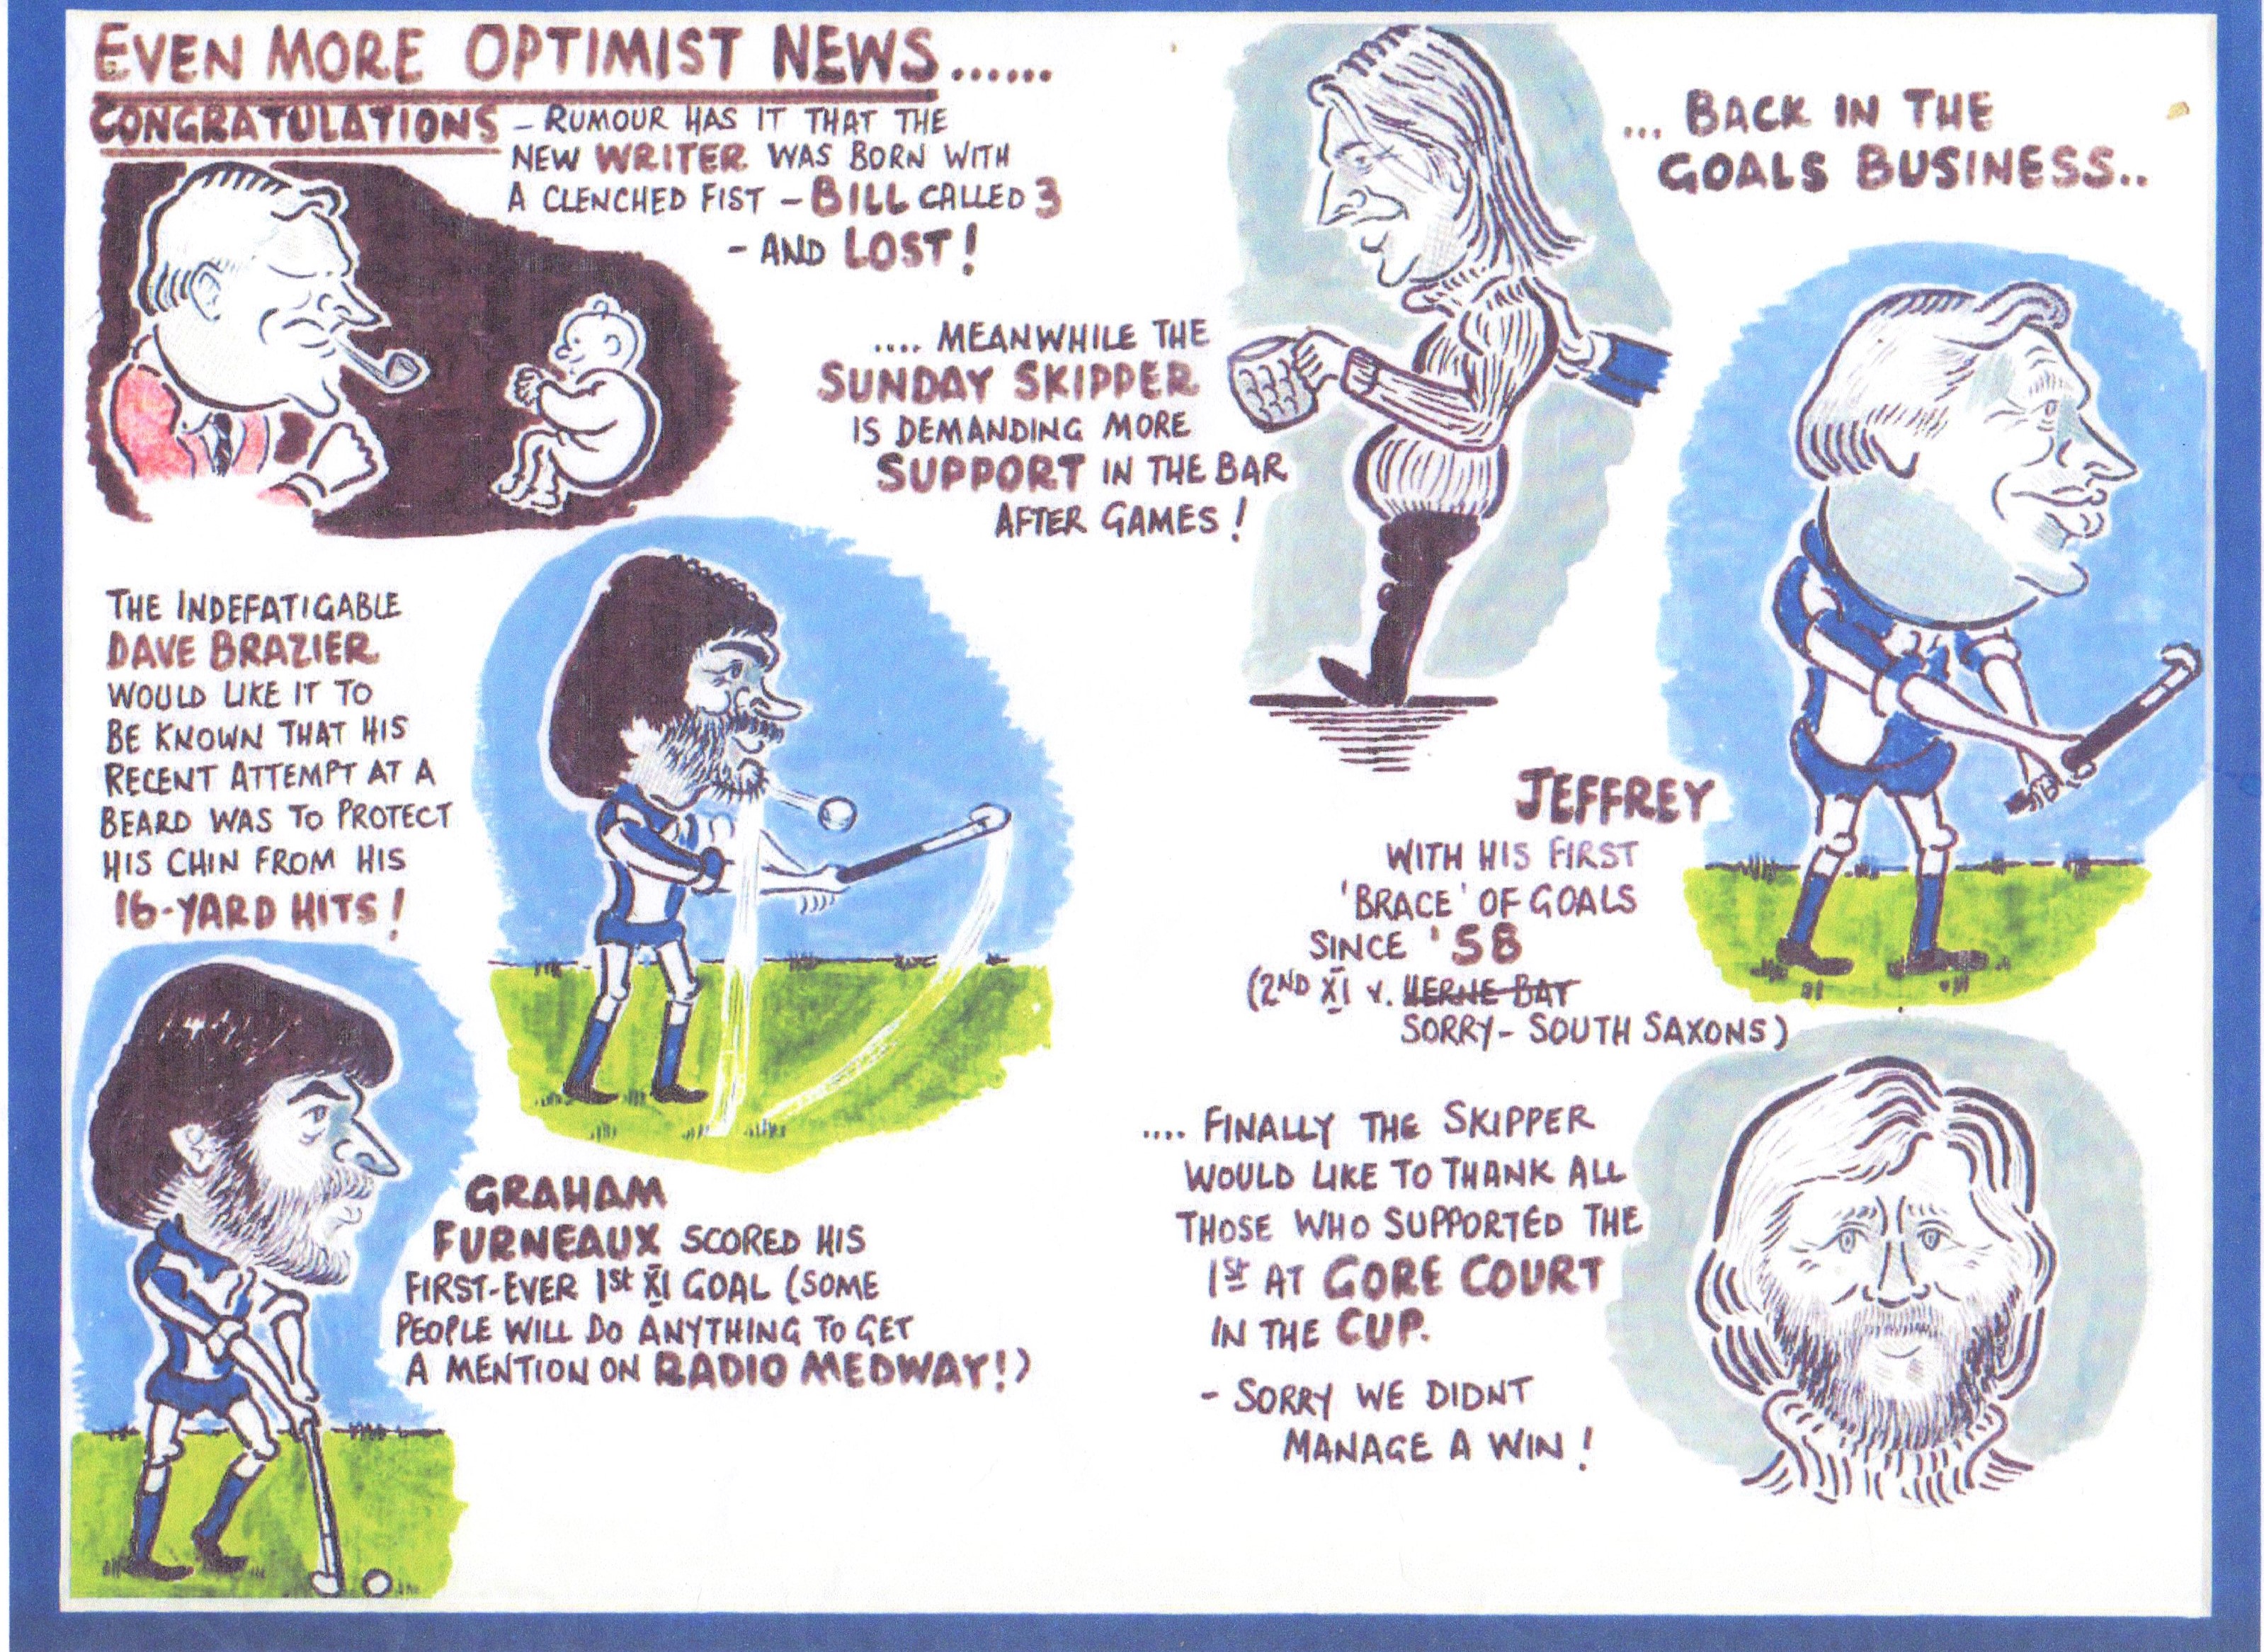 EVEN MORE OPTIMIST NEWS......
CONGRATULATIONS – RUMOUR HAS IT THAT THE
NEW WRITER WAS BORN WITH
A CLENCHED FIST – BILL CALLED 3
- AND LOST!
.... MEANWHILE THE
SUNDAY SKIPPER
IS DEMANDING MORE
SUPPORT IN THE BAR
AFTER GAMES!
... BACK IN THE
GOALS BUSINESS..
JEFFREY
WITH HIS FIRST
'BRACE' OF GOALS
SINCE '58
(2ND XI v. HERNE BAY
SORRY- SOUTH SAXONS)
THE INDEFATIGABLE
DAVE BRAZIER
WOULD LIKE IT TO
BE KNOWN THAT HIS
RECENT ATTEMPT AT A
BEARD WAS TO PROTECT
HIS CHIN FROM HIS
16-YARD HITS!
GRAHAM
FURNEAUX SCORED HIS
FIRST-EVER 1St XI GOAL (SOME
PEOPLE WILL DO ANYTHING TO GET
A MENTION ON RADIO MEDWAY!)
.... FINALLY THE SKIPPER
WOULD LIKE TO THANK ALL
THOSE WHO SUPPORTED THE
1St AT GORE COURT
IN THE CUP.
- SORRY WE DIDNT
MANAGE A WIN!